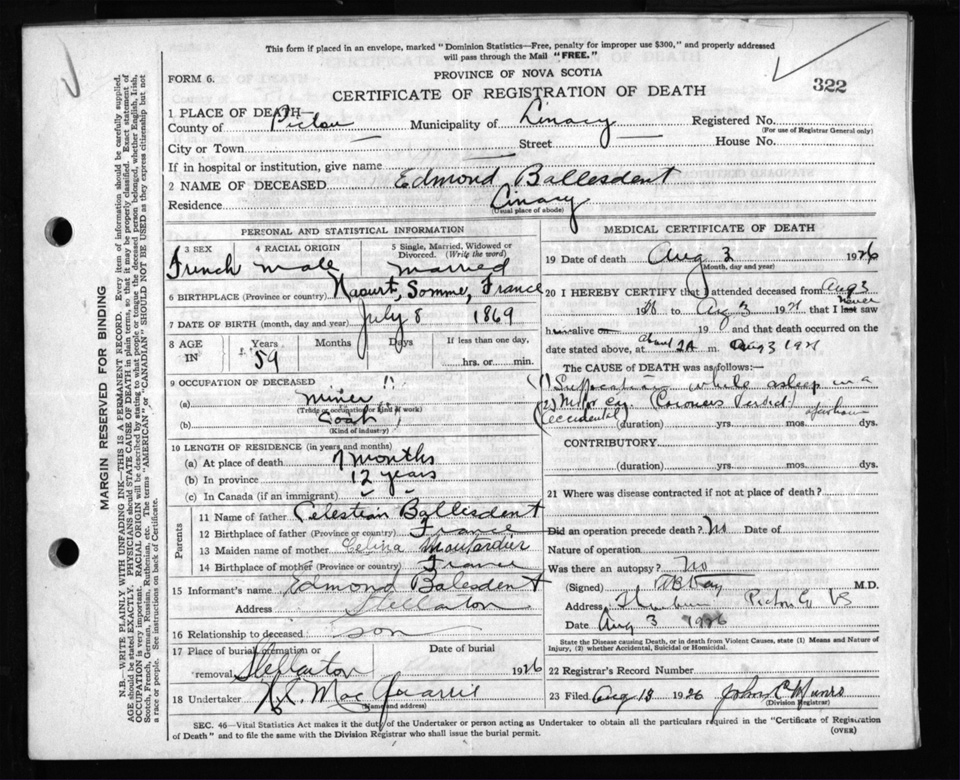 This form if placed in an envelope, marked "Dominion Statistics—Free, penalty for improper use $300," and properly addressed
will pass through the Mail "FREE."
FORM 6.
PROVINCE OF NOVA SCOTIA
322
CERTIFICATE OF REGISTRATION OF DEATH
1 PLACE OF DEATH
County of Pictou Municipality of Linacy Registered No.
(For use of Registrar General only)
City or Town Street House No.
If in hospital or institution, give name
2 NAME OF DECEASED Edmond Ballesdent
Residence Linacy
(Usual place of abode)
PERSONAL AND STATISTICAL INFORMATION
3 SEX 4 RACIAL ORIGIN 5 Single, Married, Widowed or
Divorced. (Write the word)
French male married
6 BIRTHPLACE (Province or country) Somme, France
7 DATE OF BIRTH (month, day and year) July 8 1869
8 AGE Years Months Days If less than one day,
IN 59 hrs. or min.
9 OCCUPATION OF DECEASED
(a) miner
(Trade or occupation or kind of work)
(b) Coal
(Kind of industry)
10 LENGTH OF RESIDENCE (in years and months)
(a) At place of death 7 months
(b) In province 12 years
(c) In Canada (if an immigrant)
Parents
11 Name of father Celestian Ballesdent
12 Birthplace of father (Province or country) France
13 Maiden name of mother Celina Moutardier
14 Birthplace of mother (Province or country) France
15 Informant's name Edmond Balesdent
Address Stellarton
16 Relationship to deceased son
17 Place of burial, cremation or Date of burial
removal Stellarton 1926
18 Undertaker MacQuarrie
(Name and address)
MEDICAL CERTIFICATE OF DEATH
19 Date of death Aug 3 1926
Month, day and year)
20 I HEREBY CERTIFY that I attended deceased from Aug 3
19 to Aug 3 19 that I last saw
never
h alive on 19 and that death occurred on the
date stated above, at about 2A m. Aug 3
The CAUSE of DEATH was as follows:
(1) Suffocation while asleep in a
(2) Motor Car. (Coroners Verdict)
(accidental) (duration) yrs. mos. dys.
CONTRIBUTORY
(duration) yrs. mos. dys.
21 Where was disease contracted if not at place of death?
Did an operation precede death? No Date of
Nature of operation
Was there an autopsy? No
(Signed) M.D.
Address Thorburn Pictou Co NS
Date Aug 3 1926
State the Disease causing Death, or in death from Violent Causes, state (1) Means and Nature of
Injury, (2) whether Accidental, Suicidal or Homicidal.
22 Registrar's Record Number
23 Filed Aug 18 1926 John C Munro
(Division Registrar)
SEC. 46—Vital Statistics Act makes it the duty of the Undertaker or person acting as Undertaker to obtain all the particulars required in the "Certificate of Registration
of Death" and to file the same with the Division Registrar who shall issue the burial permit.
(OVER)
MARGIN RESERVED FOR BINDING
N.B. WRITE PLAINLY WITH UNFADING INK—THIS IS A PERMANENT RECORD. Every item of information should be carefully supplied.
AGE should be stated EXACTLY. PHYSICIANS should STATE CAUSE OF DEATH in plain terms, so that it may be properly classified. Exact statement of
OCCUPATION is very important. RACIAL ORIGIN will be described by stating to what people or tongue the deceased person belonged, whether English, Irish,
Scotch, French, German, Russian, Ruthenian, etc. The terms "AMERICAN" or "CANADIAN" SHOULD NOT BE USED as they express citizenship but not
a race or people. See instructions on back of Certificate.